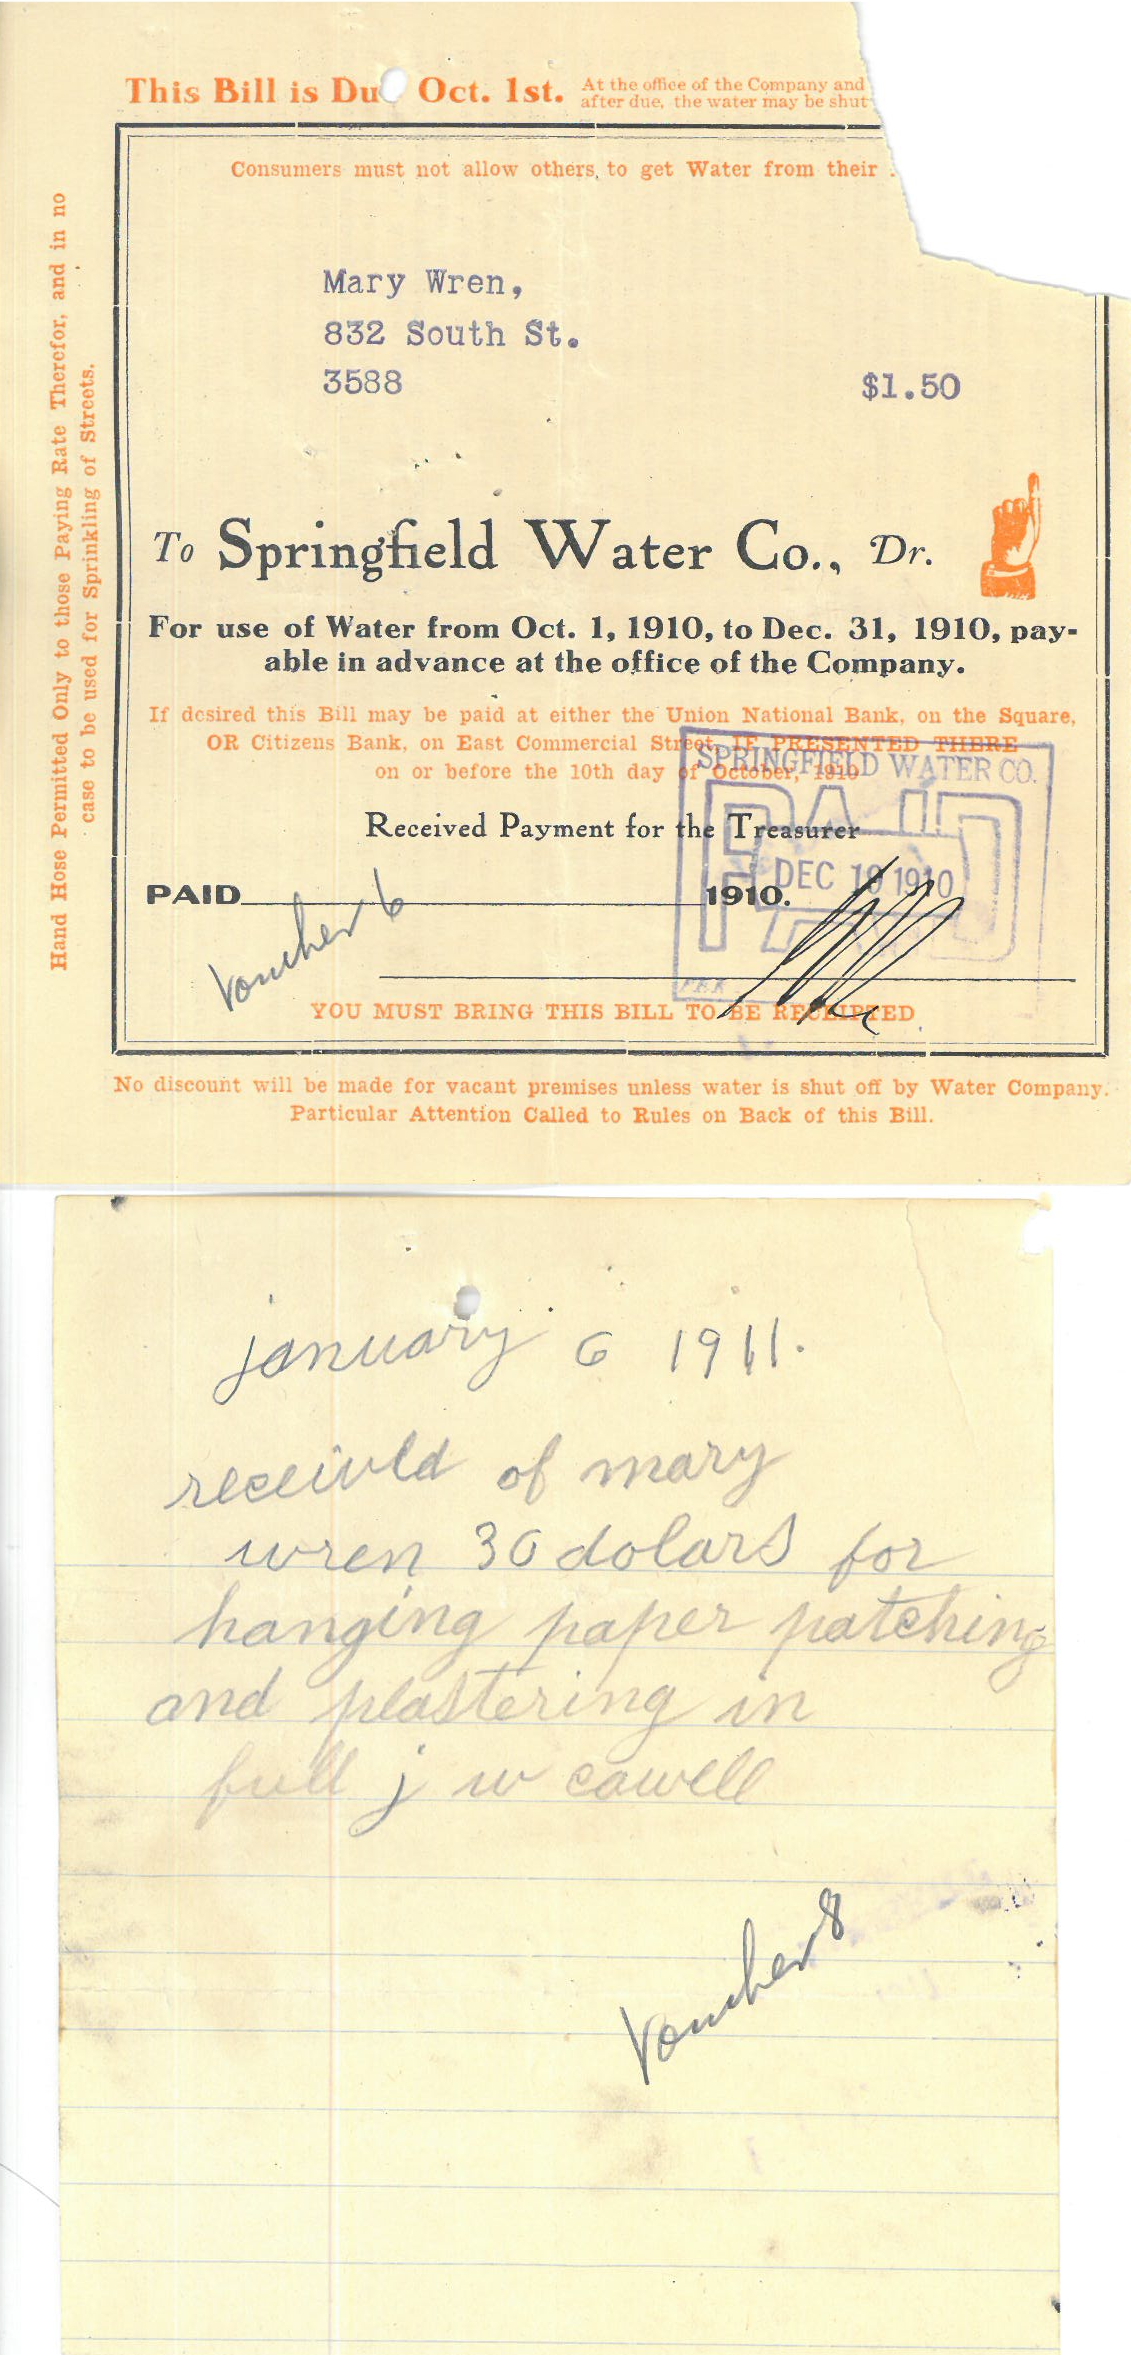 This Bill is Du Oct. 1st. At the office of the Company and
after due, the water may be shut
Consumers must not allow others, to get Water from their
Hand Hose Permitted Only to those Paying Rate Therefor, and in no
case to be used for Sprinkling of Streets.
Mary Wren,
832 South St.
3588 $1.50
To Springfield Water Co., Dr.
For use of Water from Oct. 1, 1910, to Dec. 31, 1910, pay-
able in advance at the office of the Company.
If desired this Bill may be paid at either the Union National Bank, on the Square,
OR Citizens Bank, on East Commercial Street, IF PRESENTED THERE
on or before the 10th day of October, 1910
SPRINGFIELD WATER CO.
PAID
Received Payment for the Treasurer
DEC 1910
PAID 1910.
Voucher 6
YOU MUST BRING THIS BILL TO BE RECEIPTED
No discount will be made for vacant premises unless water is shut off by Water Company.
Particular Attention Called to Rules on Back of this Bill.
january 6 1911.
receivld of mary
wren 30 dolars for
hanging paper patching
and plastering in
full j w cowell
Voucher 8